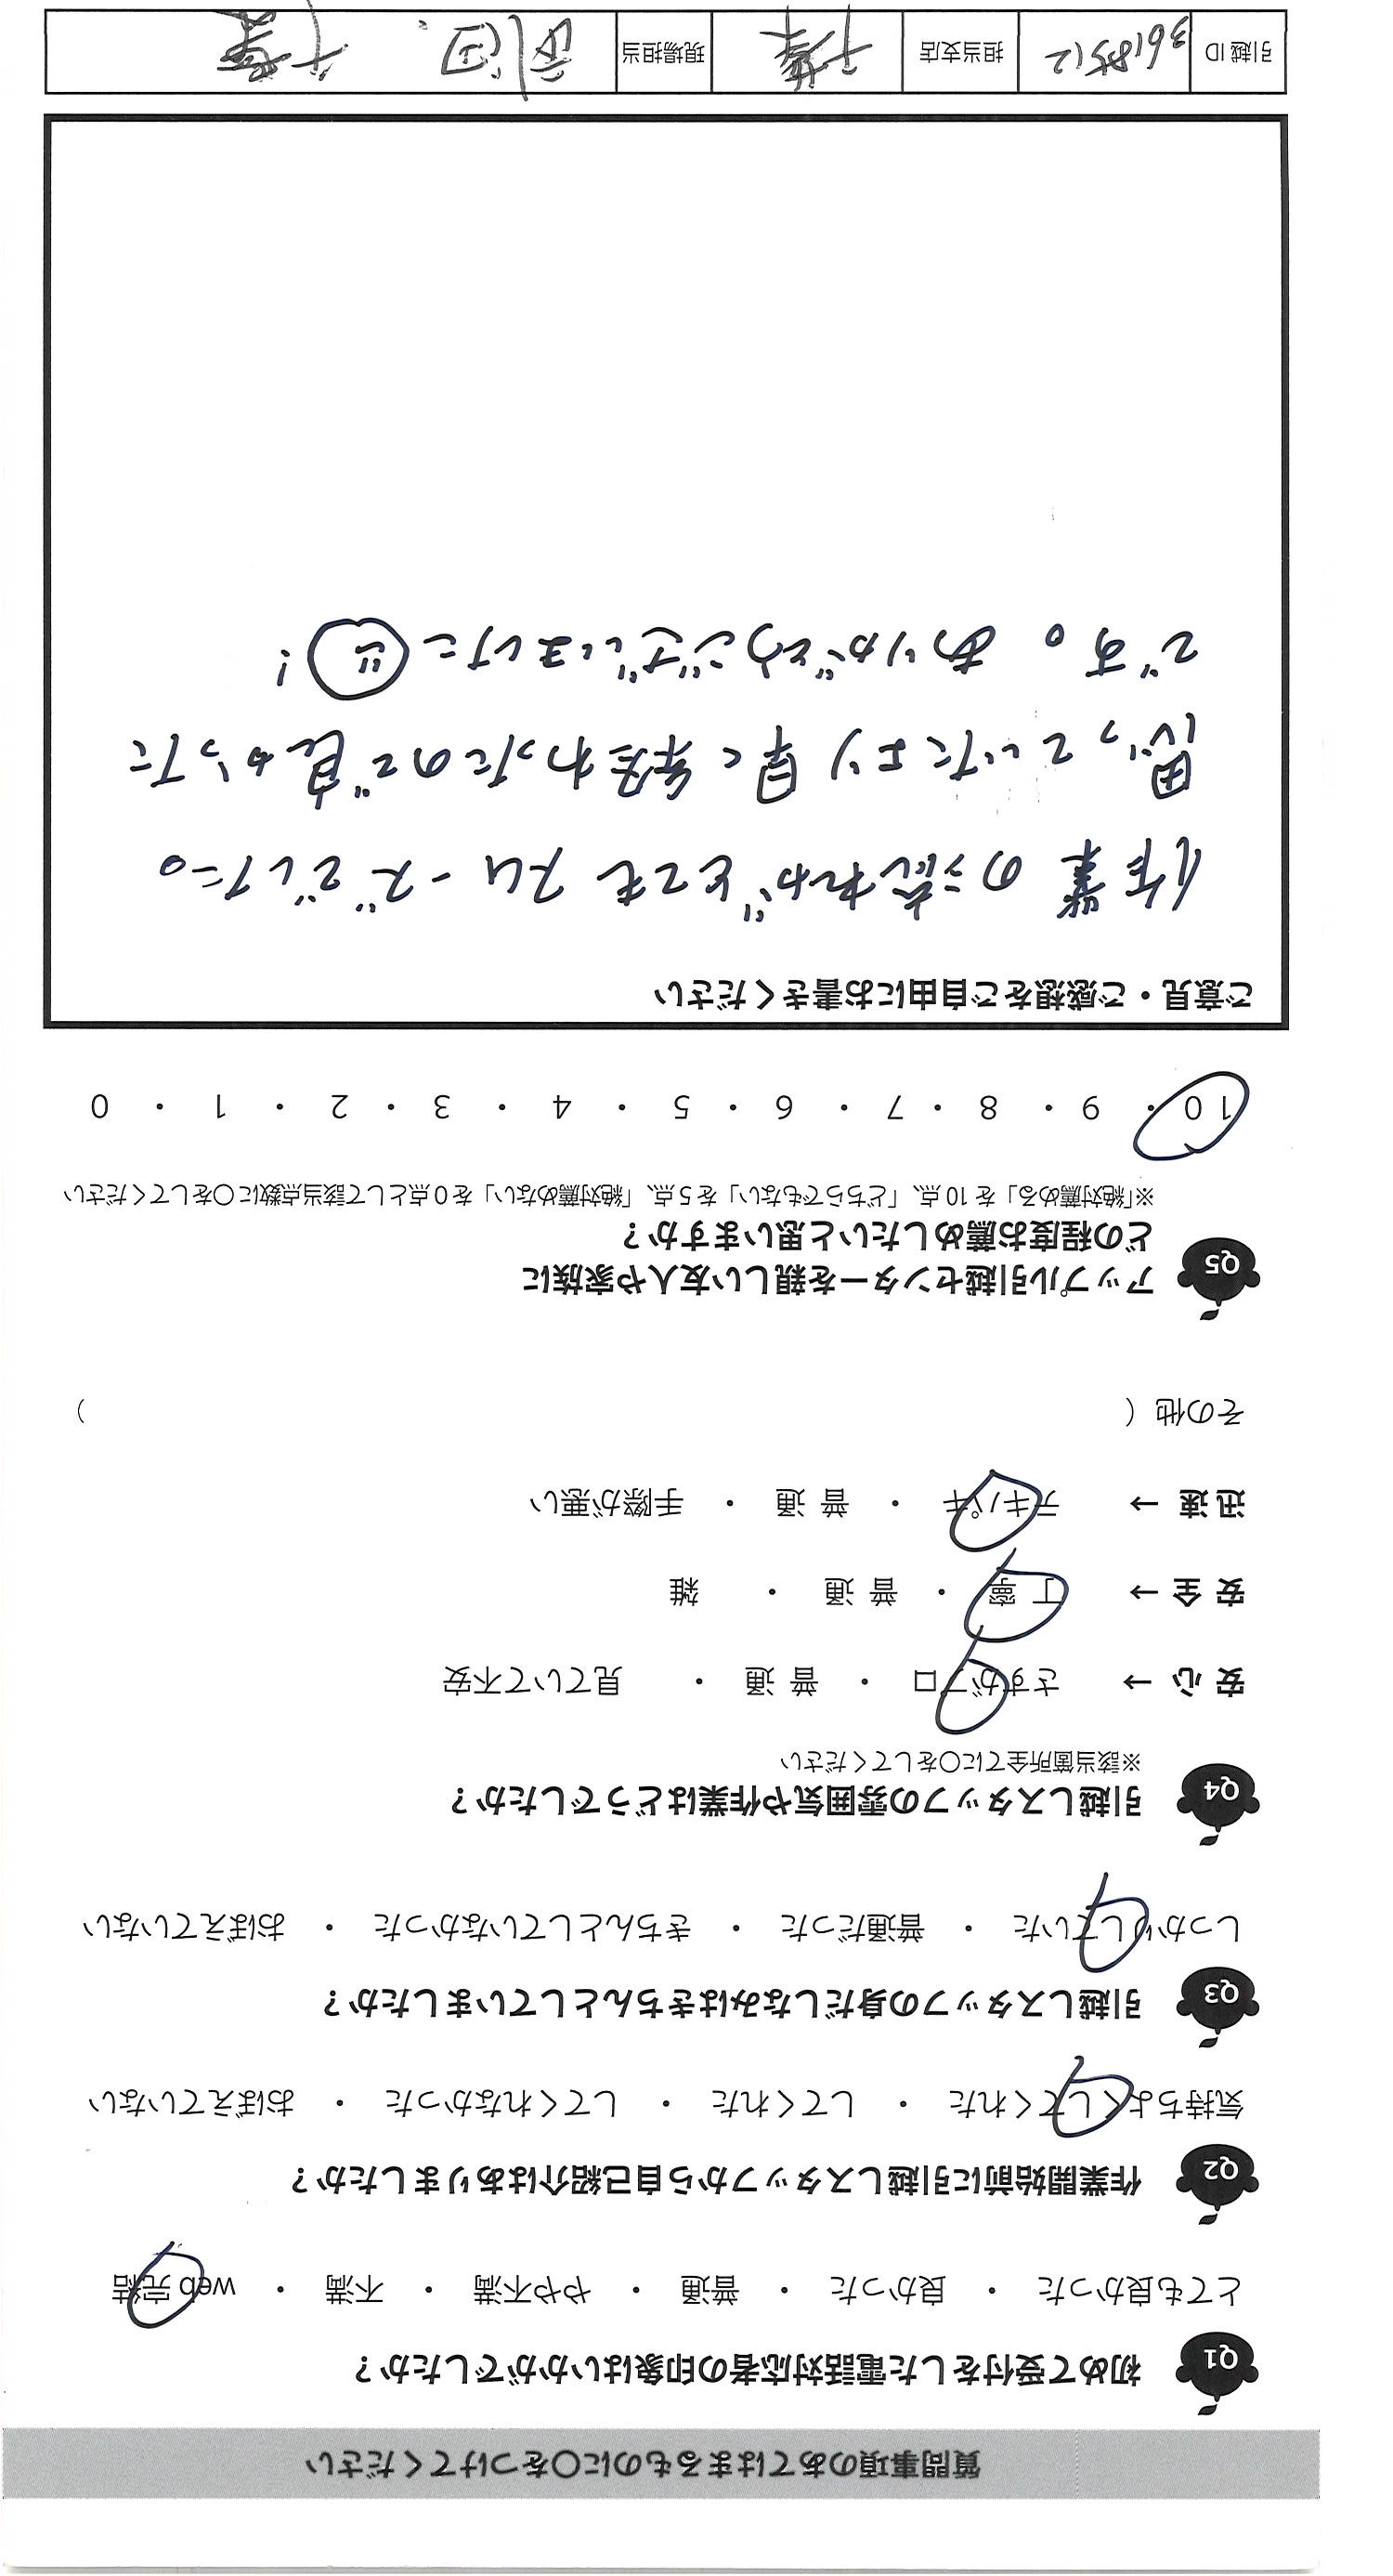 質問事項のあてはまるものに○をつけてください
Q1 初めて受付をした電話対応者の印象はいかがでしたか？
とても良かった ・ 良かった ・ 普通 ・ やや不満 ・ 不満 ・ web 完結
Q2 作業開始前に引越しスタッフから自己紹介はありましたか？
気持ちよくしてくれた ・ してくれた ・ してくれなかった ・ おぼえていない
Q3 引越しスタッフの身だしなみはきちんとしていましたか？
しっかりしていた ・ 普通だった ・ きちんとしていなかった ・ おぼえていない
Q4 引越しスタッフの雰囲気や作業はどうでしたか？
※該当箇所全てに○をしてください
安 心 → さすがプロ ・ 普 通 ・ 見ていて不安
安 全 → 丁 寧 ・ 普 通 ・ 雑
迅 速 → テキパキ ・ 普 通 ・ 手際が悪い
その他（ ）
Q5 アップル引越センターを親しい友人や家族に
どの程度お薦めしたいと思いますか？
※「絶対薦める」を 10 点、「どちらでもない」を 5 点、「絶対薦めない」を 0 点として該当点数に○をしてください
10 ・ 9 ・ 8 ・ 7 ・ 6 ・ 5 ・ 4 ・ 3 ・ 2 ・ 1 ・ 0
ご意見・ご感想をご自由にお書きください
作業の流れがとてもスムーズでした。
思っていたより早く終わったので良かった
です。ありがとうございました!
引越 ID 3618512 担当支店 千葉 現場担当